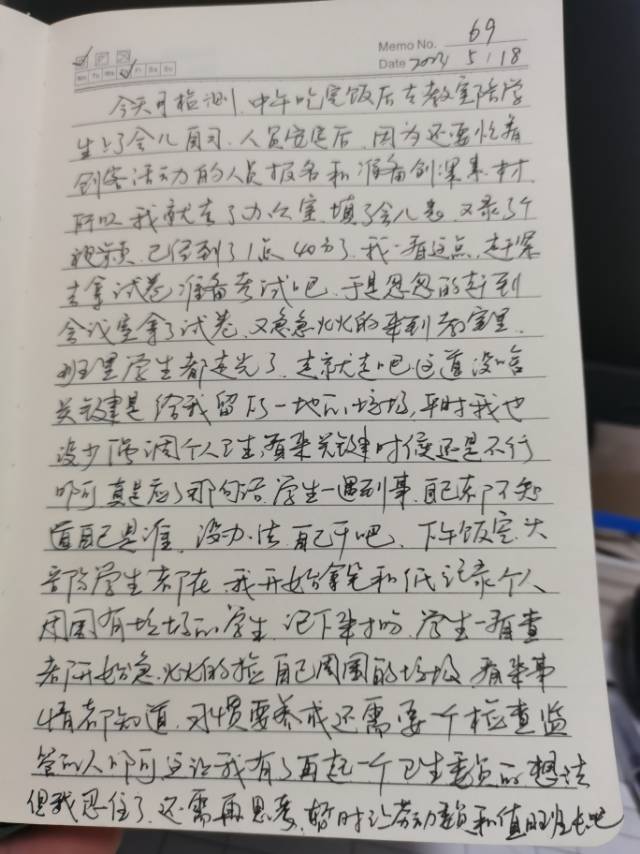 Memo No. 69
Mo Tu We Th Fr Sa Su
Date 2023 5 / 18
今天月检测，中午吃完饭后去教室陪学
生上了会儿自习，人员定完后，因为还要忙着
创客活动的人员报名和准备创课素材
所以我就去了办公室，填了会儿表，又录了个
视频，已经到了1点40分了，我一看这点，赶紧
去拿试卷准备考试吧，于是忽忽的赶到
会议室拿了试卷，又急急火火的来到教室里，
班里学生都走光了，走就走吧这道没啥
关键是给我留下一地的垃圾，平时我也
没少强调个人卫生，看来关键时候还是不行
啊，真是应了那句话，学生一遇到事，自己都不知
道自己是谁，没办法自己干吧，下午饭完，大
部分学生都在，我开始拿笔和纸记录个人
周围有垃圾的学生，记下来扣分，学生一看查
都开始急火火的捡自己周围的垃圾，看来事
情都知道，习惯要养成还需要一个检查监
管的人啊，这让我有了再起一个卫生委员的想法
但我忍住了，还需再思考，暂时让劳动委员和值班班长吧